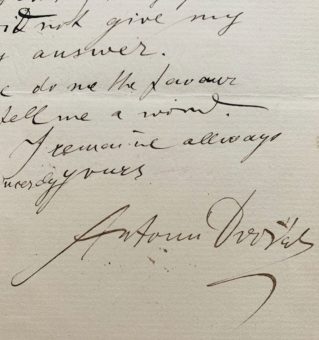 not give my
answer.
do me the favour
tell me a word.
I remaine allways
sincerely yours
Antonín Dvořák